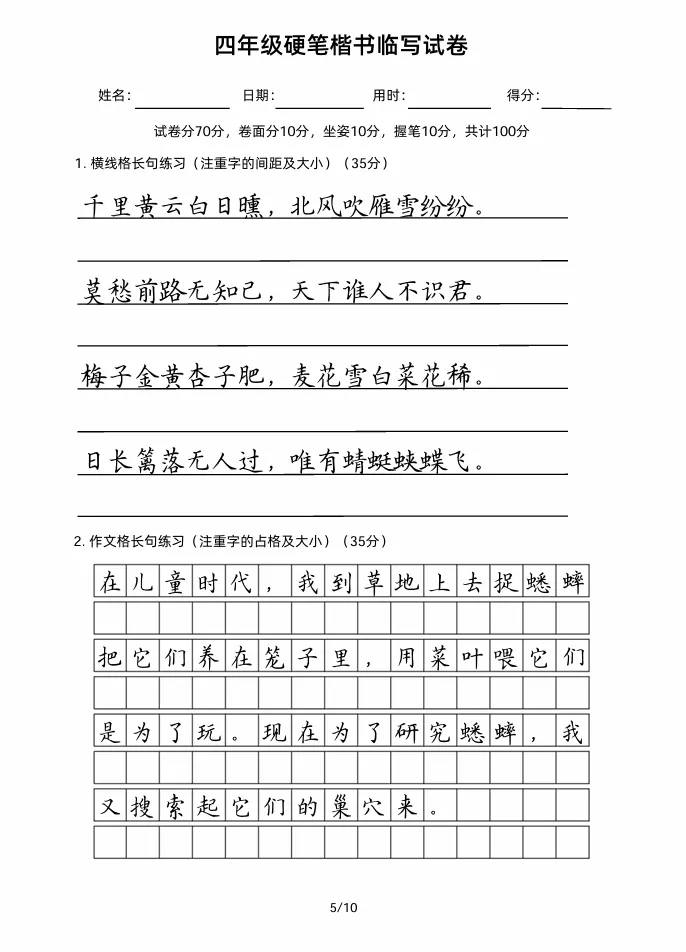 四年级硬笔楷书临写试卷
姓名： 日期： 用时： 得分：
试卷分70分，卷面分10分，坐姿10分，握笔10分，共计100分
1. 横线格长句练习（注重字的间距及大小）（35分）
千里黄云白日曛，北风吹雁雪纷纷。
莫愁前路无知己，天下谁人不识君。
梅子金黄杏子肥，麦花雪白菜花稀。
日长篱落无人过，唯有蜻蜓蛱蝶飞。
2. 作文格长句练习（注重字的占格及大小）（35分）
在儿童时代，我到草地上去捉蟋蟀
把它们养在笼子里，用菜叶喂它们
是为了玩。现在为了研究蟋蟀，我
又搜索起它们的巢穴来。
5/10